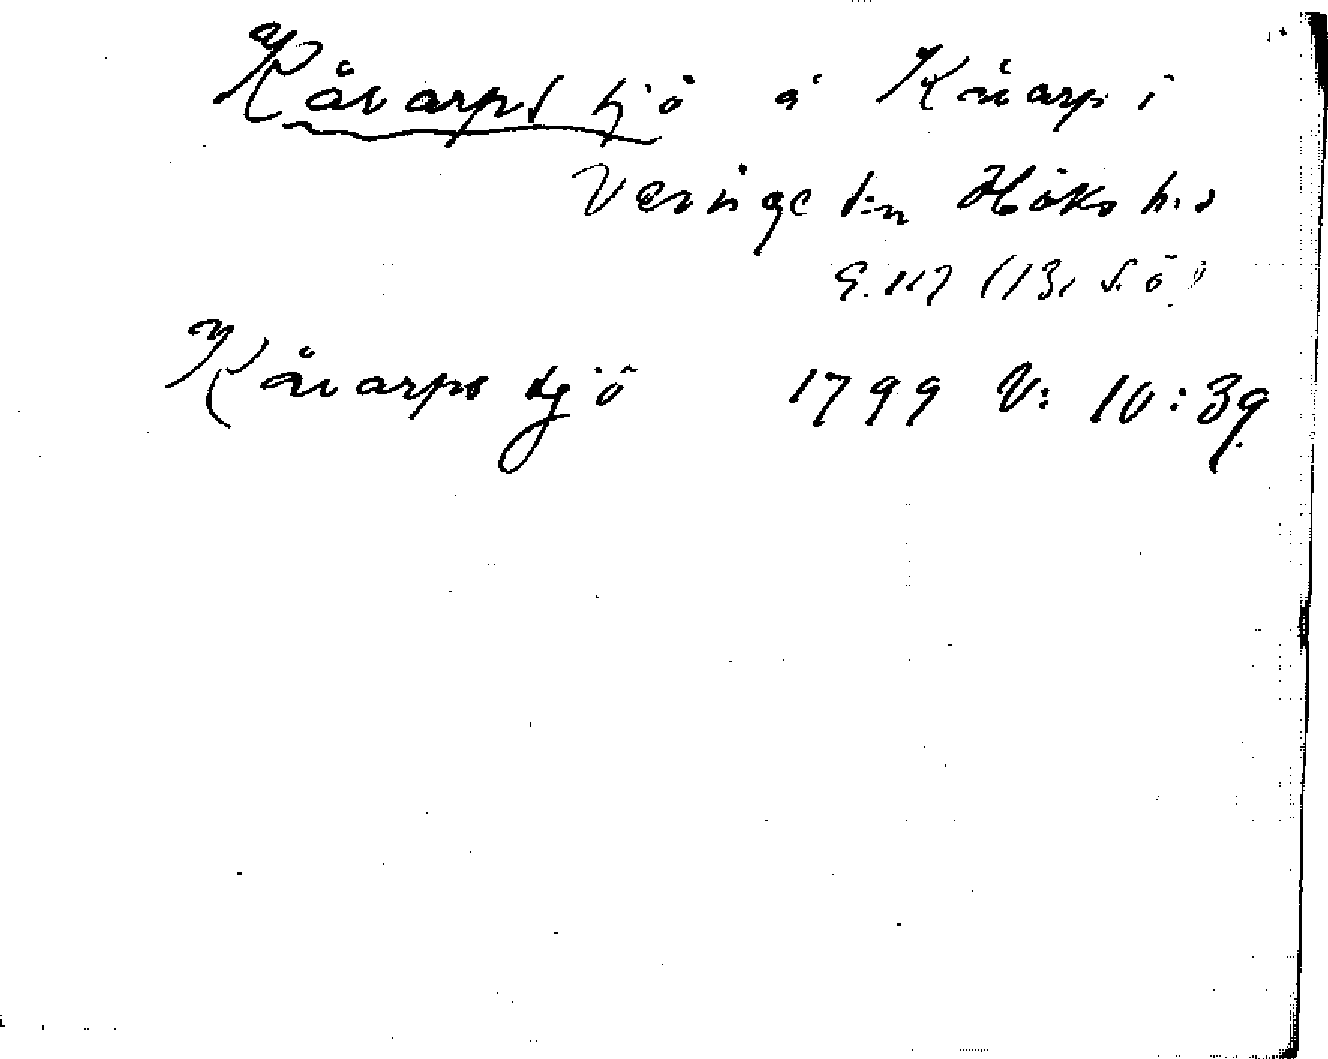 Kåvarps sjö å Kåarp i
Veinge s:n Höks h.d
G. 117 (13, S. Ö.)
Kåvarps sjö 1799 V: 10:39